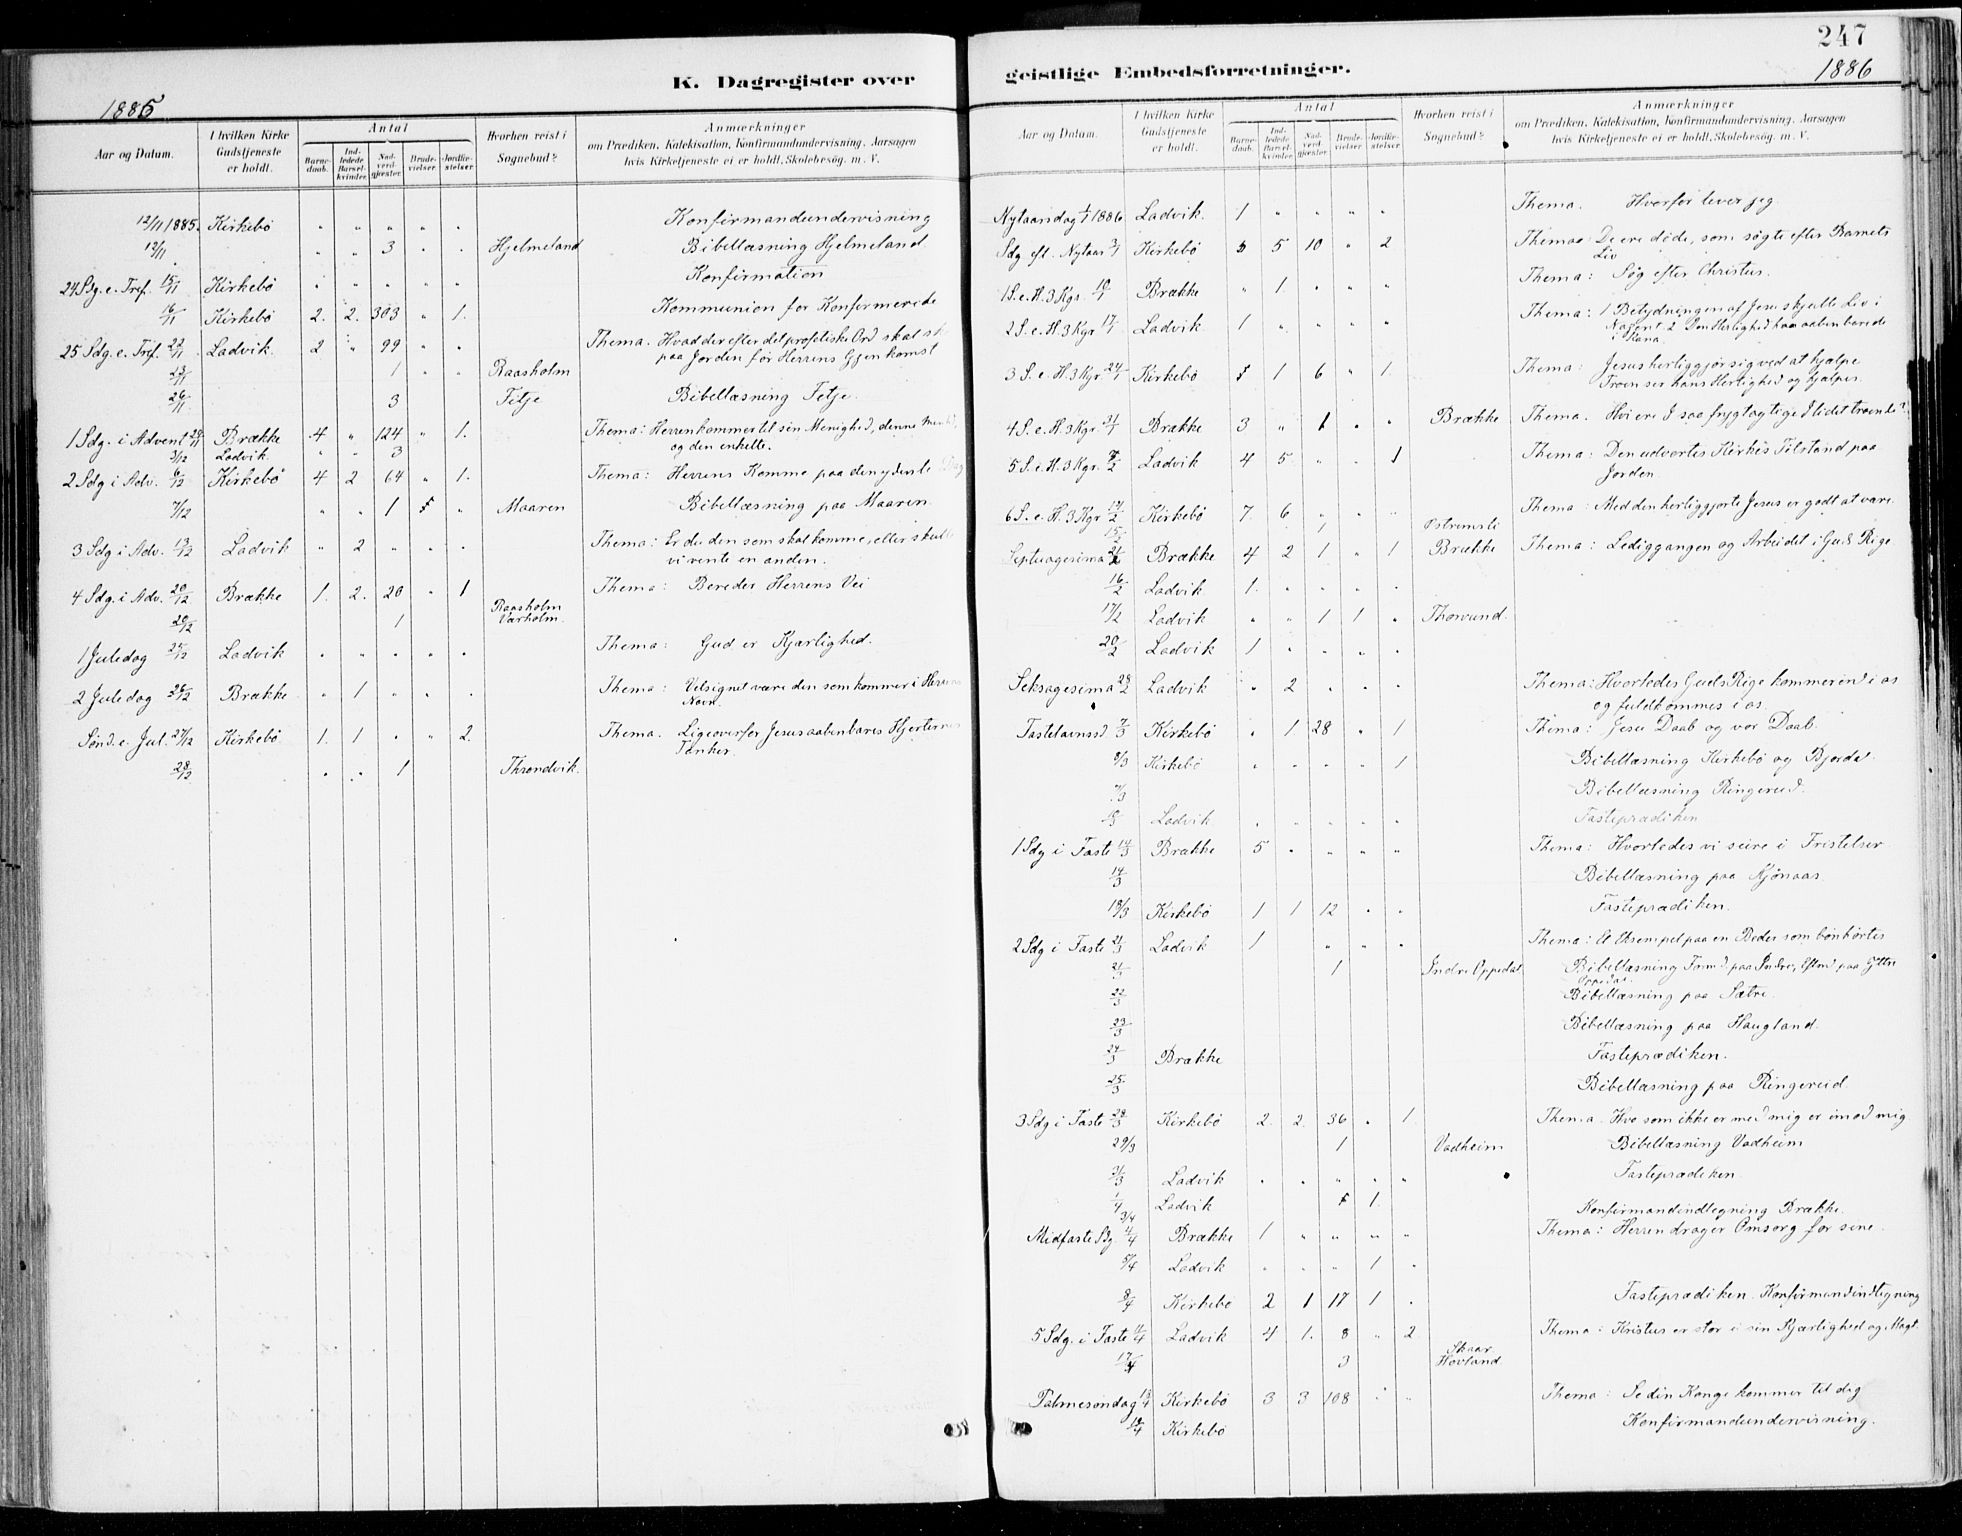 247
K. Dagregister over geistlige Embedsforretninger.
1885
1886
Aar og Datum. I hvilken Kirke Gudstjeneste er holdt. Antal Barnedaab. Indledede Barselkvinder. Nadverdgjæster. Brudevielser. Jordfæstelser. Hvorhen reist i Sognebud? Anmærkninger om Prædiken, Katekisation, Konfirmandundervisning, Aarsagen hvis Kirketjeneste ei er holdt, Skolebesøg. m. V.
12/11 1885. Kirkebö " " " " " Konfirmandundervisning
12/11 " " 3 " " Hjelmeland Bibellæsning Hjelmeland
24 Sdg. e. Tref. 15/11 Kirkebö " " " " " Konfirmation
16/11 Kirkebö 2. 2. 303 " 1. Kommunion for Konfirmerede
25 Sdg. e. Tref. 22/11 Ladvik 2 " 99 " " Thema. Hvad der efter det profetiske Ord skal
paa Jorden før Herrens Gjenkomst
23/11 1 " " Raasholm
26/11 3 Tetje Bibellæsning Tetje.
1 Sdg. i Advent 29/11 Brække 4 " 124 " 1. Thema: Herren kommer til sin Menighed, denne
og den enkelte.
3/12 Ladvik " " 3
2 Sdg i Adv. 6/12 Kirkebö 4 2 64 " 1. Thema: Herrens Komme paa den yderste Dag
7/12 " " 1 " Maaren Bibellæsning paa Maaren
3 Sdg i Adv. 13/12 Ladvik " 2 " " " Thema: Er du den som skal komme, eller skulle
vi vente en anden.
4 Sdg. i Adv. 20/12 Brække 1. 2. 20 " 1 Thema: Bereder Herrens Vei
20/12 1 Raasholm
Værholm.
1 Juledag 25/12 Ladvik " " " " " Thema: Gud er Kjærlighed.
2 Juledag 26/12 Brække " 1 " " " Thema: Velsignet være den som kommer i Herrens
Navn.
Sønd. e. Jul. 27/12 Kirkebö 1. 1 " " 2. Thema. Ligeoverfor Jesus aabenbares Hjerternes
Tanker.
28/12 " " 1 Throndvik.
Aar og Datum. I hvilken Kirke Gudstjeneste er holdt. Antal Barnedaab. Indledede Barselkvinder. Nadverdgjæster. Brudevielser. Jordfæstelser. Hvorhen reist i Sognebud? Anmærkninger om Prædiken, Katekisation, Konfirmandundervisning, Aarsagen hvis Kirketjeneste ei er holdt, Skolebesøg. m. V.
Nytaarsdag 1/1 1886 Ladvik. 1 " " " " Thema. Hvorfor lever jeg.
Sdg eft. Nytaar 3/1 Kirkebö 5 5 10 " 2 Thema: De ere døde, som søgte efter Barnets
Liv
1 S. e. H. 3 Kgr. 10/1 Brække " 1. " " " Thema: Søg efter Christus.
2 S. e. H. 3 Kgr 17/1 Ladvik 1 " " " " Thema: 1 Betydningen af Jesu skjulte Liv i
Nazaret 2 Den Herlighed han aabenbarede
i Kana.
3 S. e. H. 3 Kgr. 24/1 Kirkebö 1 6 " 1. Thema: Jesus herliggjør sig ved at hjælpe
Troen ser hans Herlighed og hjælper.
4 S. e. H. 3 Kgr 31/1 Brække 3 " 1 " " Brække Thema. Hvi ere I saa frygtagtige I lidet troende?
5 S. e. H. 3 Kgr. 7/2 Ladvik 4 5. " " 1 Thema: Den udvortes Kirkes Tilstand paa
Jorden.
6 S. e. H. 3 Kgr 14/2 Kirkebö 7. 6 " " " Thema: Med den herliggjorte Jesus er godt at være
15/2 1 Østremsli
Septuagesima 21/2 Brække 4 2 1 " 1 Brække Thema: Lediggangen og Arbeidet i Guds Rige
16/2 Ladvik 1. " " " "
17/2 Ladvik " " 1 1 " Thorsund.
20/2 Ladvik 1 " " " "
Seksagesima 28/2 Ladvik " 2 " " " Thema: Hvorledes Guds Rige kommer ind i os
og fuldkommes i os.
Fastelavnssd. 7/3 Kirkebö " 1 28 " 1 Thema: Jesu Daab og vor Daab.
8/3 Kirkebö " " " " 1 Bibellæsning Kirkebö og Bjorde.
9/3 Bibellæsning Ringereid.
10/3 Ladvik " " " " " Fasteprædiken
1 Sdg i Faste 14/3 Brække 5 " " " " Thema: Hvorledes vi seire i Fristelser
14/3 Bibellæsning paa Njønaas
18/3 Kirkebö 1 1 12 " " Fasteprædiken.
2 Sdg i Faste 21/3 Ladvik 1 " " " Thema: Et Eksempel paa en Beder som bönhörtes
21/3 1 Indre Oppedal Bibellæsning Form.d. paa Indre, Eftmd paa Yttre
Oppedal.
22/3 Bibellæsning paa Sætre.
23/3 Bibellæsning paa Haugland.
24/3 Brække Fasteprædiken.
25/3 Bibellæsning paa Ringereid
3 Sdg i Faste 28/3 Kirkebö 2. 2. 36 " 1. Thema. Hvo som ikke er med mig er imod mig
29/3 1 Vadheim Bibellæsning Vadheim
31/3 Ladvik " " " " " Fasteprædiken.
1/4 Ladvik 1.
3/4 Konfirmandindtegning Brække.
Midfaste Sdg. 4/4 Brække 1 " " " " Thema: Herren drager Omsorg for sine.
5/4 Ladvik " " " 1 "
8/4 Kirkebö 2 1 17 1 " Fasteprædiken. Konfirmandindtegning
5 Sdg. i Faste 11/4 Ladvik 4 1. 8 " 2 Thema: Kristus er stor i sin Kjærlighed og Magt
17/4 3 Skaar
Hovland.
Palmesøndag 18/4 Kirkebö 3 3 108 " " Thema: Se din Konge kommer til dig
19/4 Kirkebö Konfirmandundervisning.